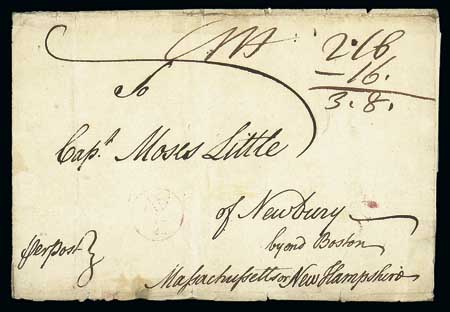 2.16
-16.
3.8.
To
Capt Moses Little
of Newbury
byond Boston
Massachussetts or New Hampshire
per post